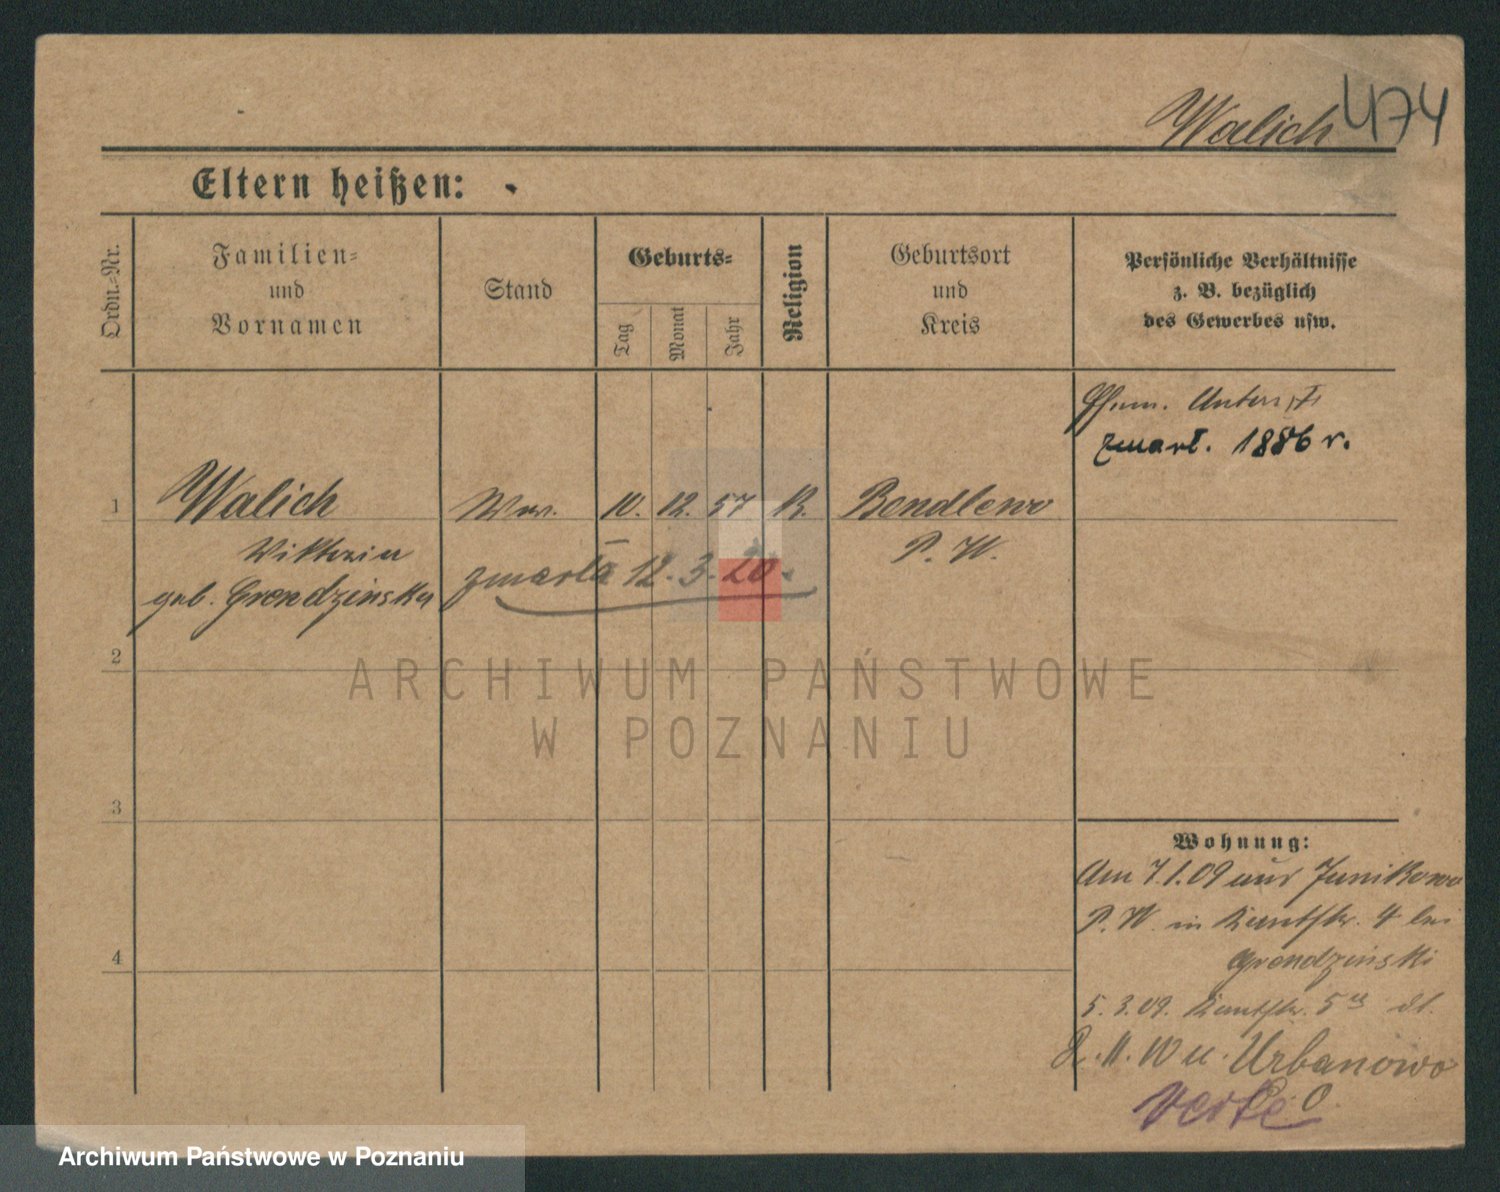 Walich 474
Eltern heißen:
Ordn.=Nr.
Familien=
und
Vornamen
Stand
Geburts=
Tag
Monat
Jahr
Religion
Geburtsort
und
Kreis
Persönliche Verhältnisse
z. B. bezüglich
des Gewerbes usw.
Ehem. Unterst
zmarł. 1886 r.
1 Walich Ww. 10. 12. 57 K. Bendlewo
Wiktoria P. W.
geb. Grondzinska zmarła 12. 3. 20.
2
3
4
Wohnung:
Am 7.1.09 aus Junikowo
P. W. in Kantstr. 4 bei
Grondzinski
5. 3. 09. Kantstr. 5
Urbanowo
P. O.
Verte
ARCHIWUM PAŃSTWOWE
W POZNANIU
Archiwum Państwowe w Poznaniu